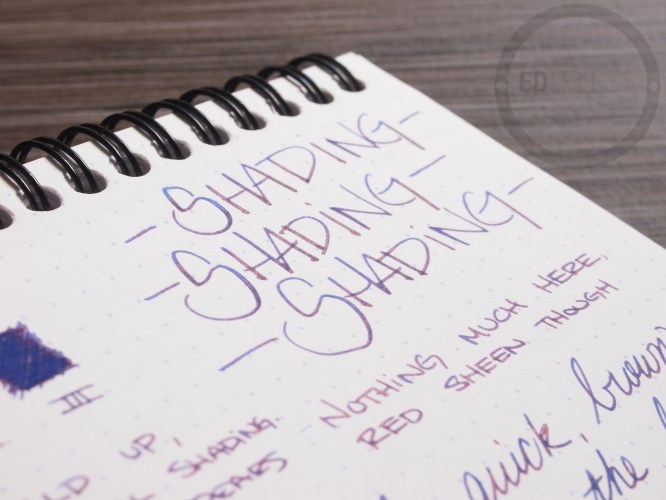 -SHADING-
-SHADING-
-SHADING-
III
UP,
SHADING.
NOTHING MUCH HERE,
RED SHEEN THOUGH
quick, brown
the
ED